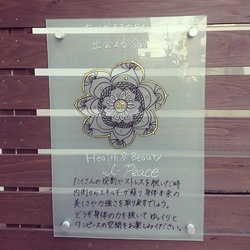 出会える Sa
Health & Beauty
Peace
たくさんの役割やストレスを脱いだ時
内側からエネルギーが蘇り身体本来の
美しさや力強さを取り戻すでしょう。
どうぞ身体の力を抜いてゆっくりと
ワンピースの空間をお楽しみください。